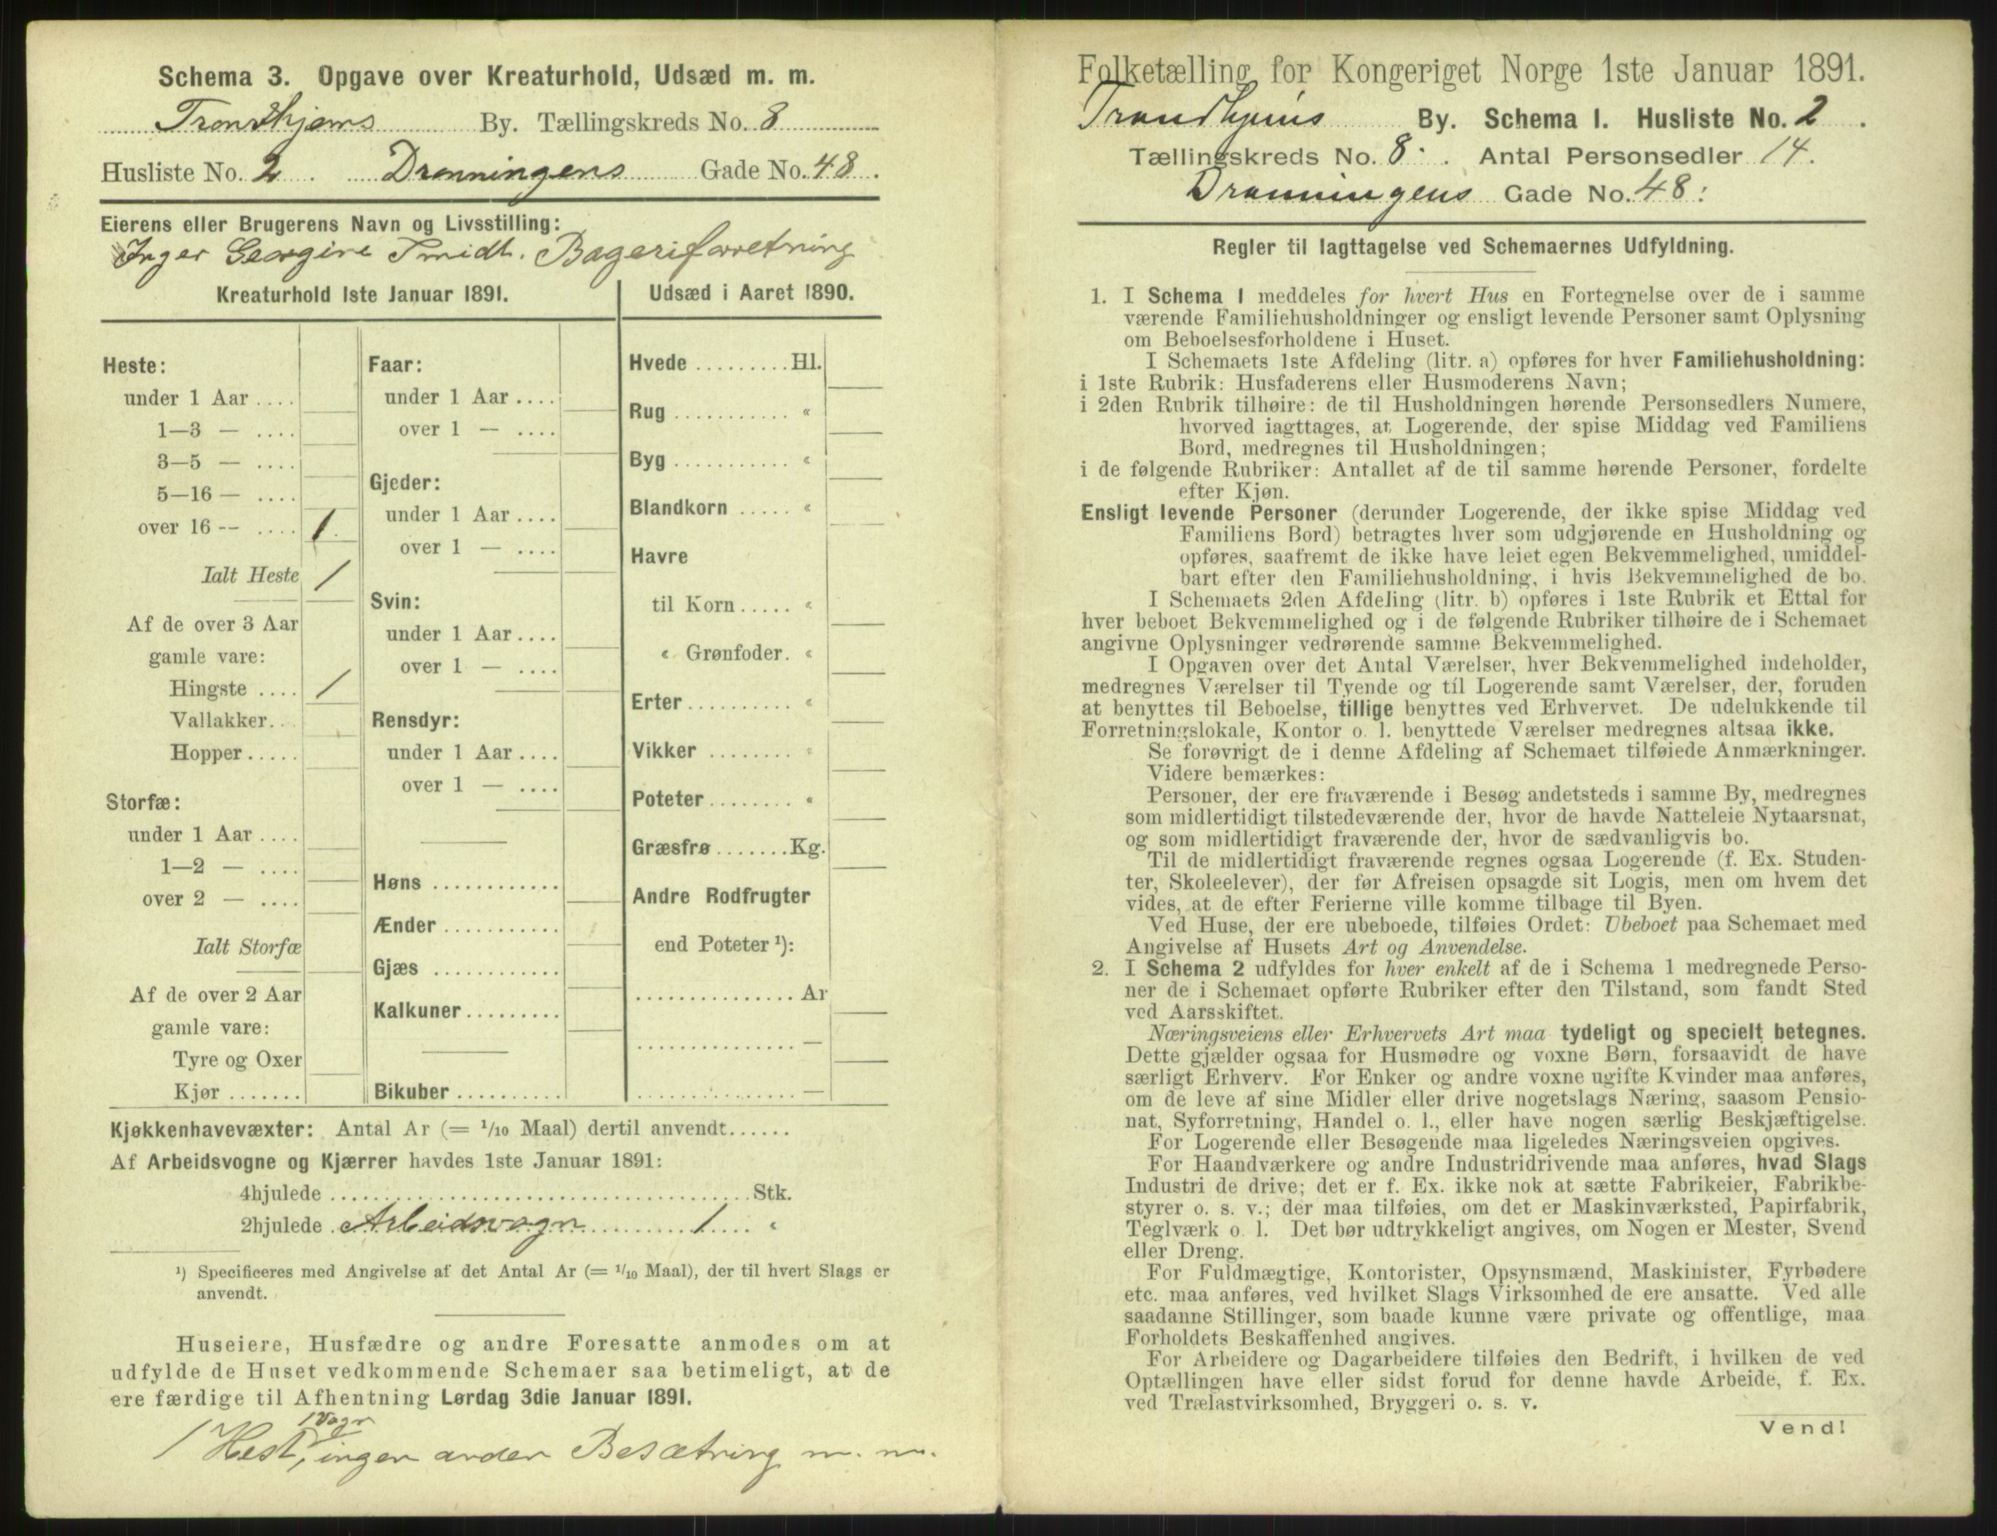 Schema 3. Opgave over Kreaturhold, Udsæd m. m.
Trondhjems By. Tællingskreds No. 8
Husliste No. 2. Dronningens Gade No. 48.
Eierens eller Brugerens Navn og Livsstilling:
Inger Georgine Smidt. Bageriforretning
Kreaturhold 1ste Januar 1891.
Heste:
under 1 Aar ....
1—3 — ....
3—5 — ....
5—16 — ....
over 16 -- .... 1.
Ialt Heste 1
Af de over 3 Aar
gamle vare:
Hingste .... 1
Vallakker..
Hopper.....
Storfæ:
under 1 Aar ....
1—2 — ....
over 2 — ....
Ialt Storfæ
Af de over 2 Aar
gamle vare:
Tyre og Oxer
Kjør .......
Faar:
under 1 Aar ....
over 1 — ....
Gjeder:
under 1 Aar ....
over 1 — ....
Svin:
under 1 Aar ....
over 1 — ....
Rensdyr:
under 1 Aar ....
over 1 — ....
Høns ............
Ænder ...........
Gjæs ............
Kalkuner.........
Bikuber ..........
Udsæd i Aaret 1890.
Hvede .........Hl.
Rug ........... “
Byg ........... “
Blandkorn ..... “
Havre
til Korn ..... “
“ Grønfoder. “
Erter.......... “
Vikker ........ “
Poteter........ “
Græsfrø .......Kg.
Andre Rodfrugter
end Poteter ¹):
............... Ar
............... —
............... —
Kjøkkenhavevæxter: Antal Ar (= 1/10 Maal) dertil anvendt......
Af Arbeidsvogne og Kjærrer havdes 1ste Januar 1891:
4hjulede ........................................Stk.
2hjulede . Arbeidsvogn ........ 1 .... “
¹) Specificeres med Angivelse af det Antal Ar (= 1/10 Maal), der til hvert Slags er
anvendt.
Huseiere, Husfædre og andre Foresatte anmodes om at
udfylde de Huset vedkommende Schemaer saa betimeligt, at de
ere færdige til Afhentning Lørdag 3die Januar 1891.
1 Vogn
1 Hest, ingen anden Besætning m. m.
Folketælling for Kongeriget Norge 1ste Januar 1891.
Trondhjems By. Schema I. Husliste No. 2.
Tællingskreds No. 8. Antal Personsedler 14.
Dronningens Gade No. 48.
Regler til Iagttagelse ved Schemaernes Udfyldning.
1. I Schema 1 meddeles for hvert Hus en Fortegnelse over de i samme
værende Familiehusholdninger og ensligt levende Personer samt Oplysning
om Beboelsesforholdene i Huset.
I Schemaets 1ste Afdeling (litr. a) opføres for hver Familiehusholdning:
i 1ste Rubrik: Husfaderens eller Husmoderens Navn;
i 2den Rubrik tilhøire: de til Husholdningen hørende Personsedlers Numere,
hvorved iagttages, at Logerende, der spise Middag ved Familiens
Bord, medregnes til Husholdningen;
i de følgende Rubriker: Antallet af de til samme hørende Personer, fordelte
efter Kjøn.
Ensligt levende Personer (derunder Logerende, der ikke spise Middag ved
Familiens Bord) betragtes hver som udgjørende en Husholdning og
opføres, saafremt de ikke have leiet egen Bekvemmelighed, umiddel-
bart efter den Familiehusholdning, i hvis Bekvemmelighed de bo.
I Schemaets 2den Afdeling (litr. b) opføres i 1ste Rubrik et Ettal for
hver beboet Bekvemmelighed og i de følgende Rubriker tilhøire de i Schemaet
angivne Oplysninger vedrørende samme Bekvemmelighed.
I Opgaven over det Antal Værelser, hver Bekvemmelighed indeholder,
medregnes Værelser til Tyende og til Logerende samt Værelser, der, foruden
at benyttes til Beboelse, tillige benyttes ved Erhvervet. De udelukkende til
Forretningslokale, Kontor o. l. benyttede Værelser medregnes altsaa ikke.
Se forøvrigt de i denne Afdeling af Schemaet tilføiede Anmærkninger.
Videre bemærkes:
Personer, der ere fraværende i Besøg andetsteds i samme By, medregnes
som midlertidigt tilstedeværende der, hvor de havde Natteleie Nytaarsnat,
og som midlertidigt fraværende der, hvor de sædvanligvis bo.
Til de midlertidigt fraværende regnes ogsaa Logerende (f. Ex. Studen-
ter, Skoleelever), der før Afreisen opsagde sit Logis, men om hvem det
vides, at de efter Ferierne ville komme tilbage til Byen.
Ved Huse, der ere ubeboede, tilføies Ordet: Ubeboet paa Schemaet med
Angivelse af Husets Art og Anvendelse.
2. I Schema 2 udfyldes for hver enkelt af de i Schema 1 medregnede Perso-
ner de i Schemaet opførte Rubriker efter den Tilstand, som fandt Sted
ved Aarsskiftet.
Næringsveiens eller Erhvervets Art maa tydeligt og specielt betegnes.
Dette gjælder ogsaa for Husmødre og voxne Børn, forsaavidt de have
særligt Erhverv. For Enker og andre voxne ugifte Kvinder maa anføres,
om de leve af sine Midler eller drive nogetslags Næring, saasom Pensio-
nat, Syforretning, Handel o. l., eller have nogen særlig Beskjæftigelse.
For Logerende eller Besøgende maa ligeledes Næringsveien opgives.
For Haandværkere og andre Industridrivende maa anføres, hvad Slags
Industri de drive; det er f. Ex. ikke nok at sætte Fabrikeier, Fabrikbe-
styrer o. s. v.; der maa tilføies, om det er Maskinværksted, Papirfabrik,
Teglværk o. l. Det bør udtrykkeligt angives, om Nogen er Mester, Svend
eller Dreng.
For Fuldmægtige, Kontorister, Opsynsmænd, Maskinister, Fyrbødere
etc. maa anføres, ved hvilket Slags Virksomhed de ere ansatte. Ved alle
saadanne Stillinger, som baade kunne være private og offentlige, maa
Forholdets Beskaffenhed angives.
For Arbeidere og Dagarbeidere tilføies den Bedrift, i hvilken de ved
Optællingen have eller sidst forud for denne havde Arbeide, f. Ex.
ved Trælastvirksomhed, Bryggeri o. s. v.
Vend!